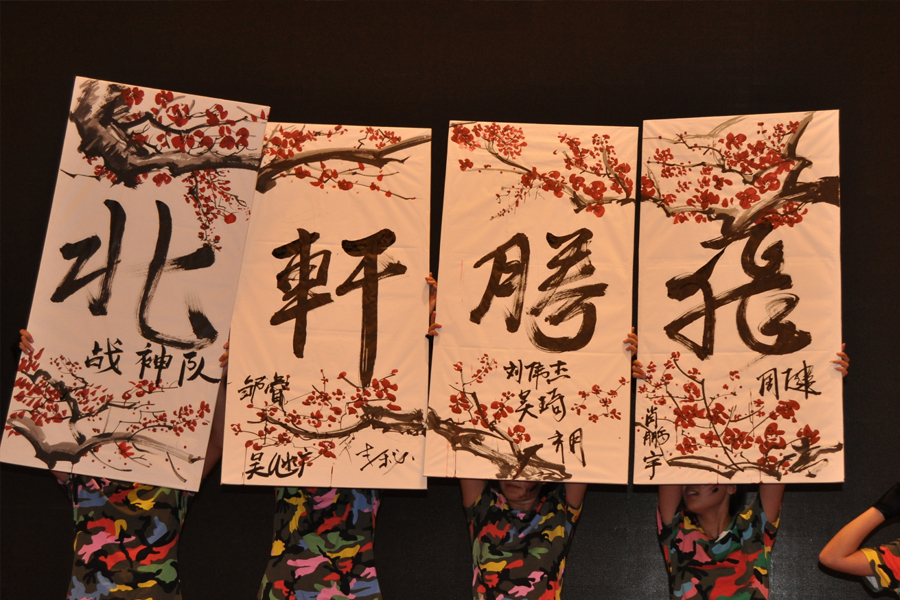 北
战神队
軒
邹
吴
腾
刘伟杰
吴琦
飛
周建
肖鹏宇